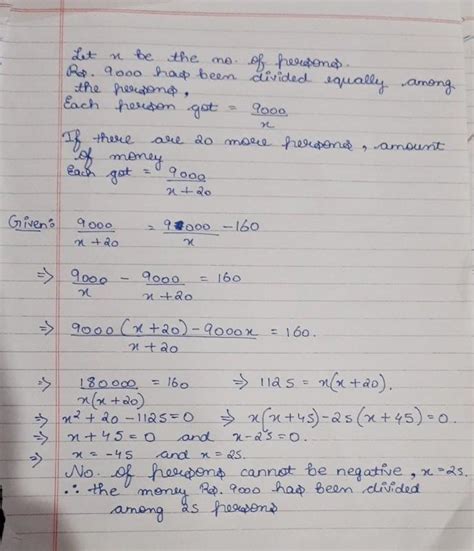 Let x be the no. of persons.
Rs. 9000 had been divided equally among
the persons,
Each person got = 9000/x
If there are 20 more persons, amount
of money
Each got = 9000/x+20
Given: 9000/x+20 = 9000/x - 160
⇒ 9000/x - 9000/x+20 = 160
⇒ 9000(x+20) - 9000x/x+20 = 160.
⇒ 180000/x(x+20) = 160 ⇒ 1125 = x(x+20).
⇒ x² + 20 - 1125 = 0 ⇒ x(x+45) - 25(x+45) = 0.
⇒ x + 45 = 0 and x - 25 = 0.
⇒ x = -45 and x = 25.
No. of persons cannot be negative, x = 25.
∴ the money Rs. 9000 had been divided
among 25 persons